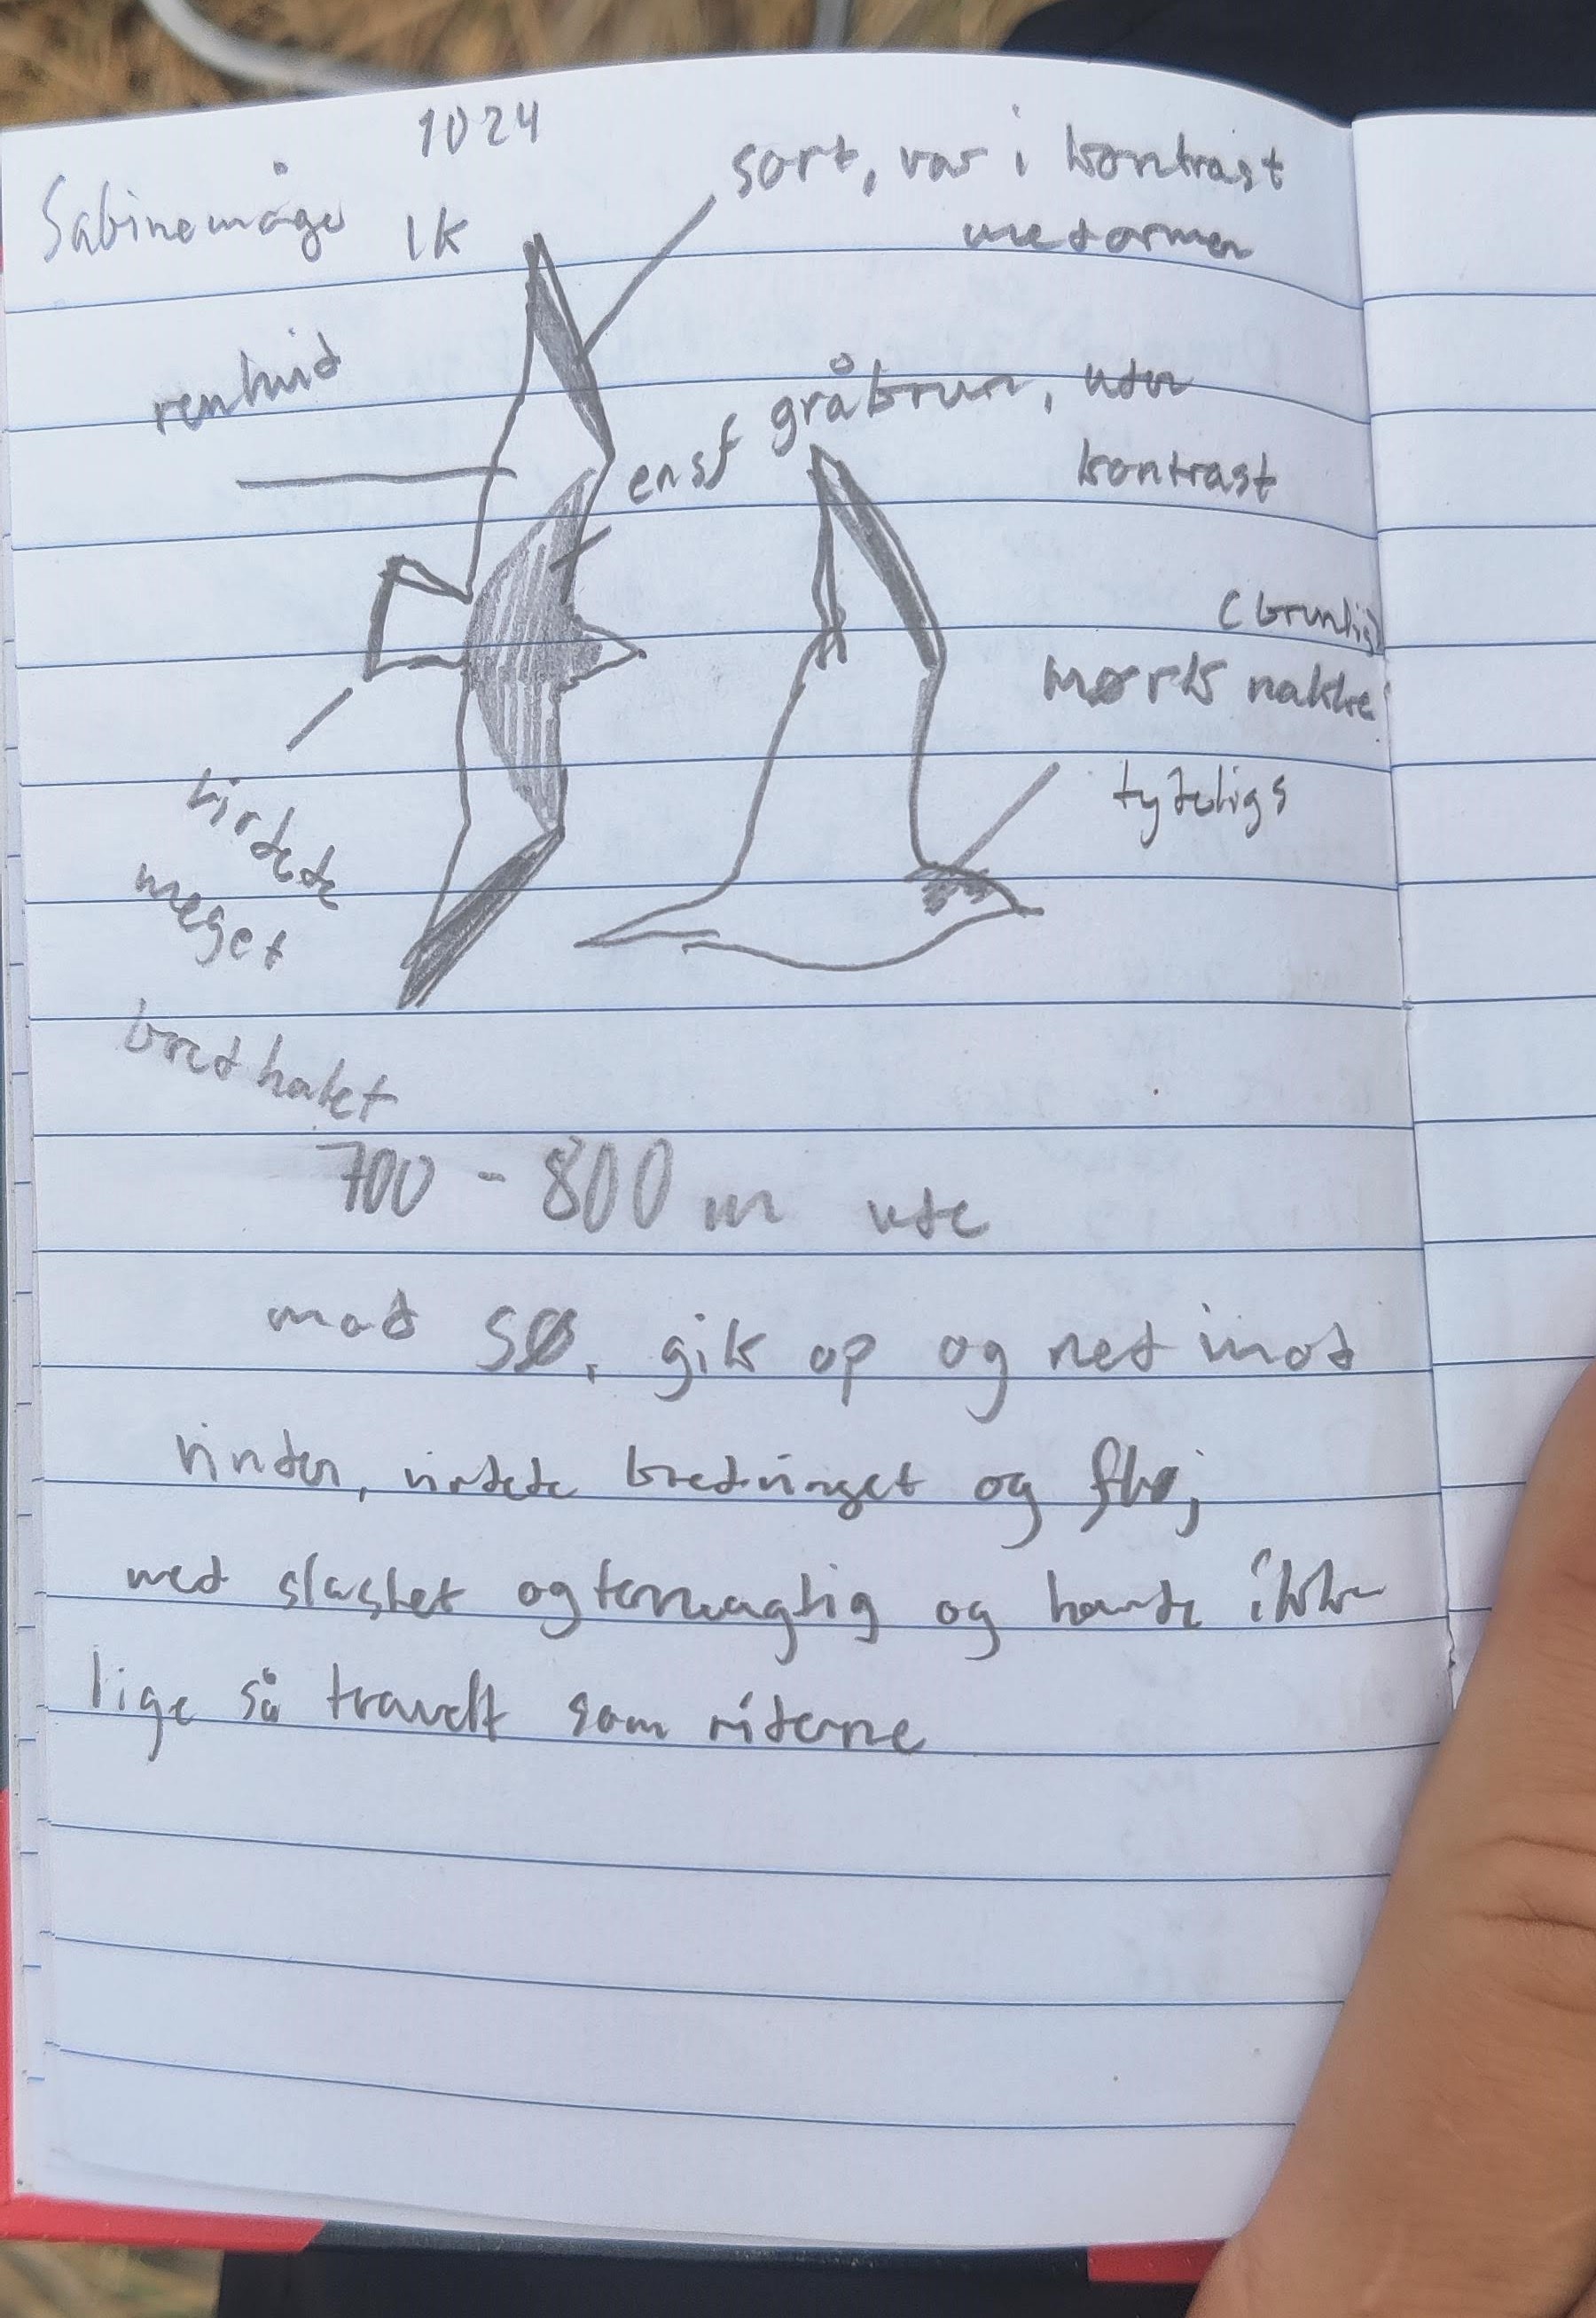 1024
Sabinemåge 1K
sort, var i kontrast
med armen
renhvid
ensf gråbrun, uden
kontrast
(brunlig)
mørk nakke
tydelig
virkede
meget
bredhalet
700 - 800 m ude
mod SØ, gik op og ned imod
vinden, virkede bredvinget og fløj
med slasket og ternagtig og havde ikke
lige så travlt som riderne